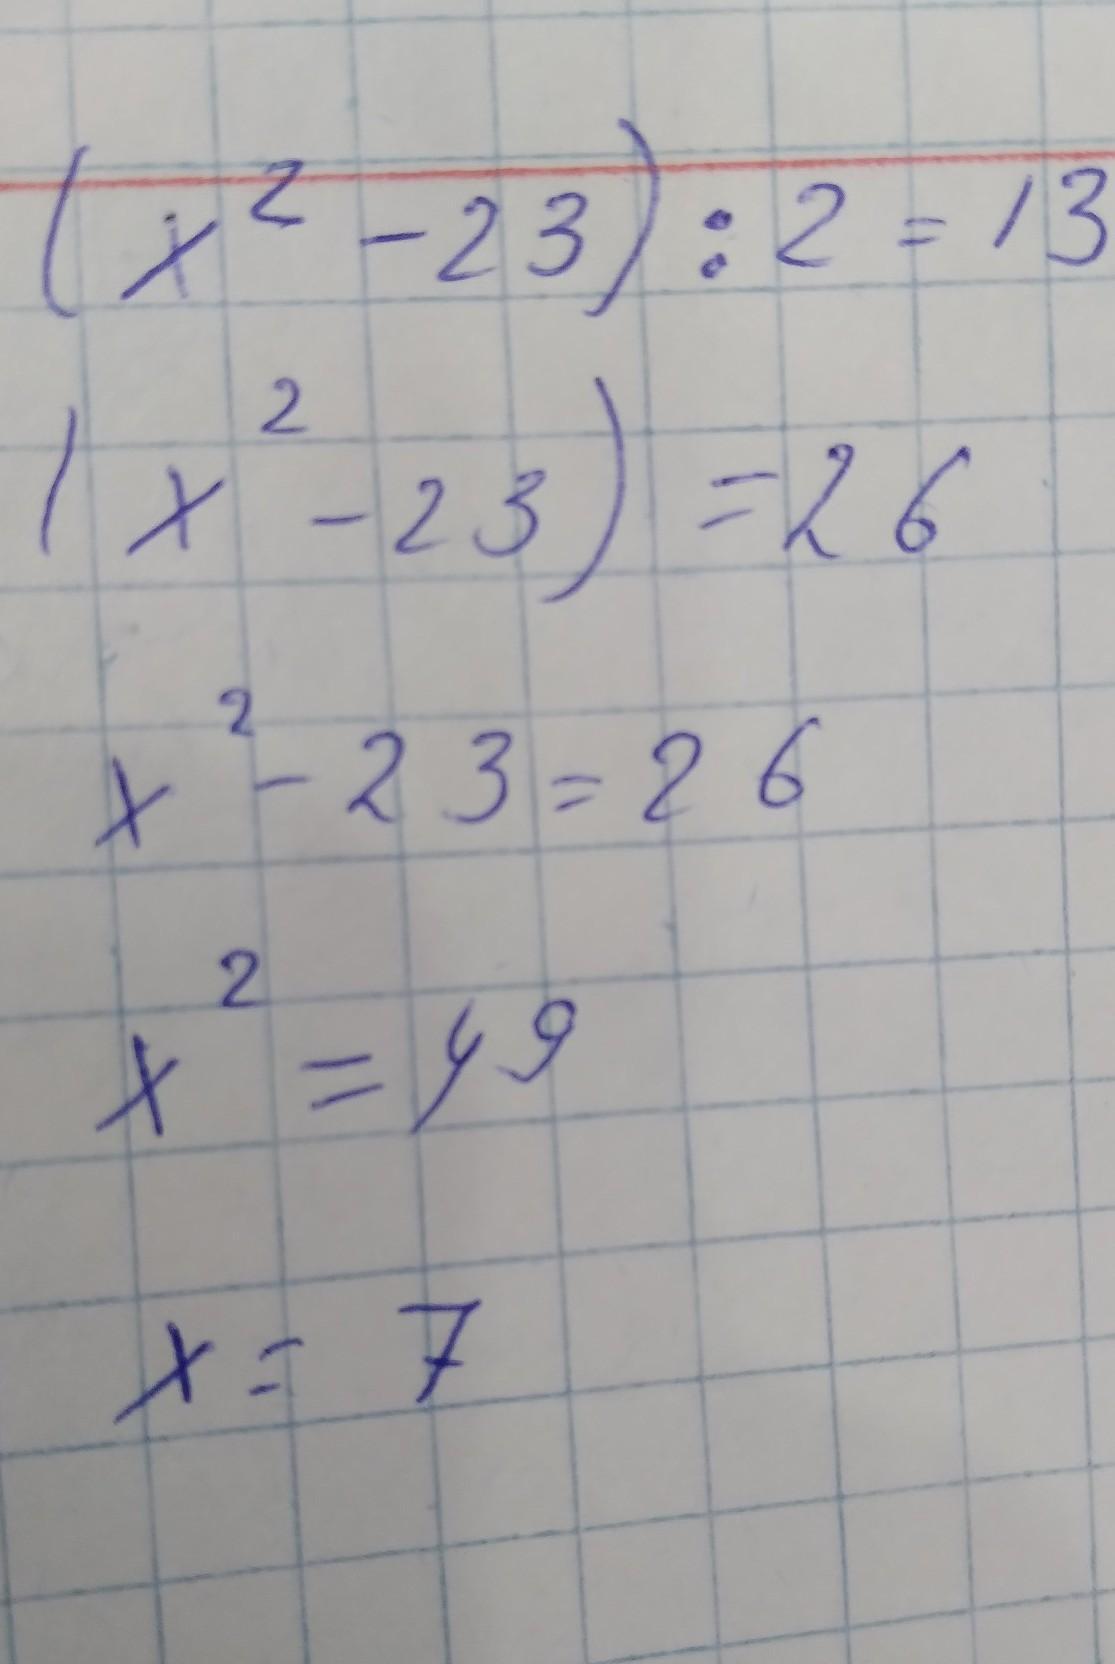 (x² - 23) : 2 = 13
(x² - 23) = 26
x² - 23 = 26
x² = 49
x = 7